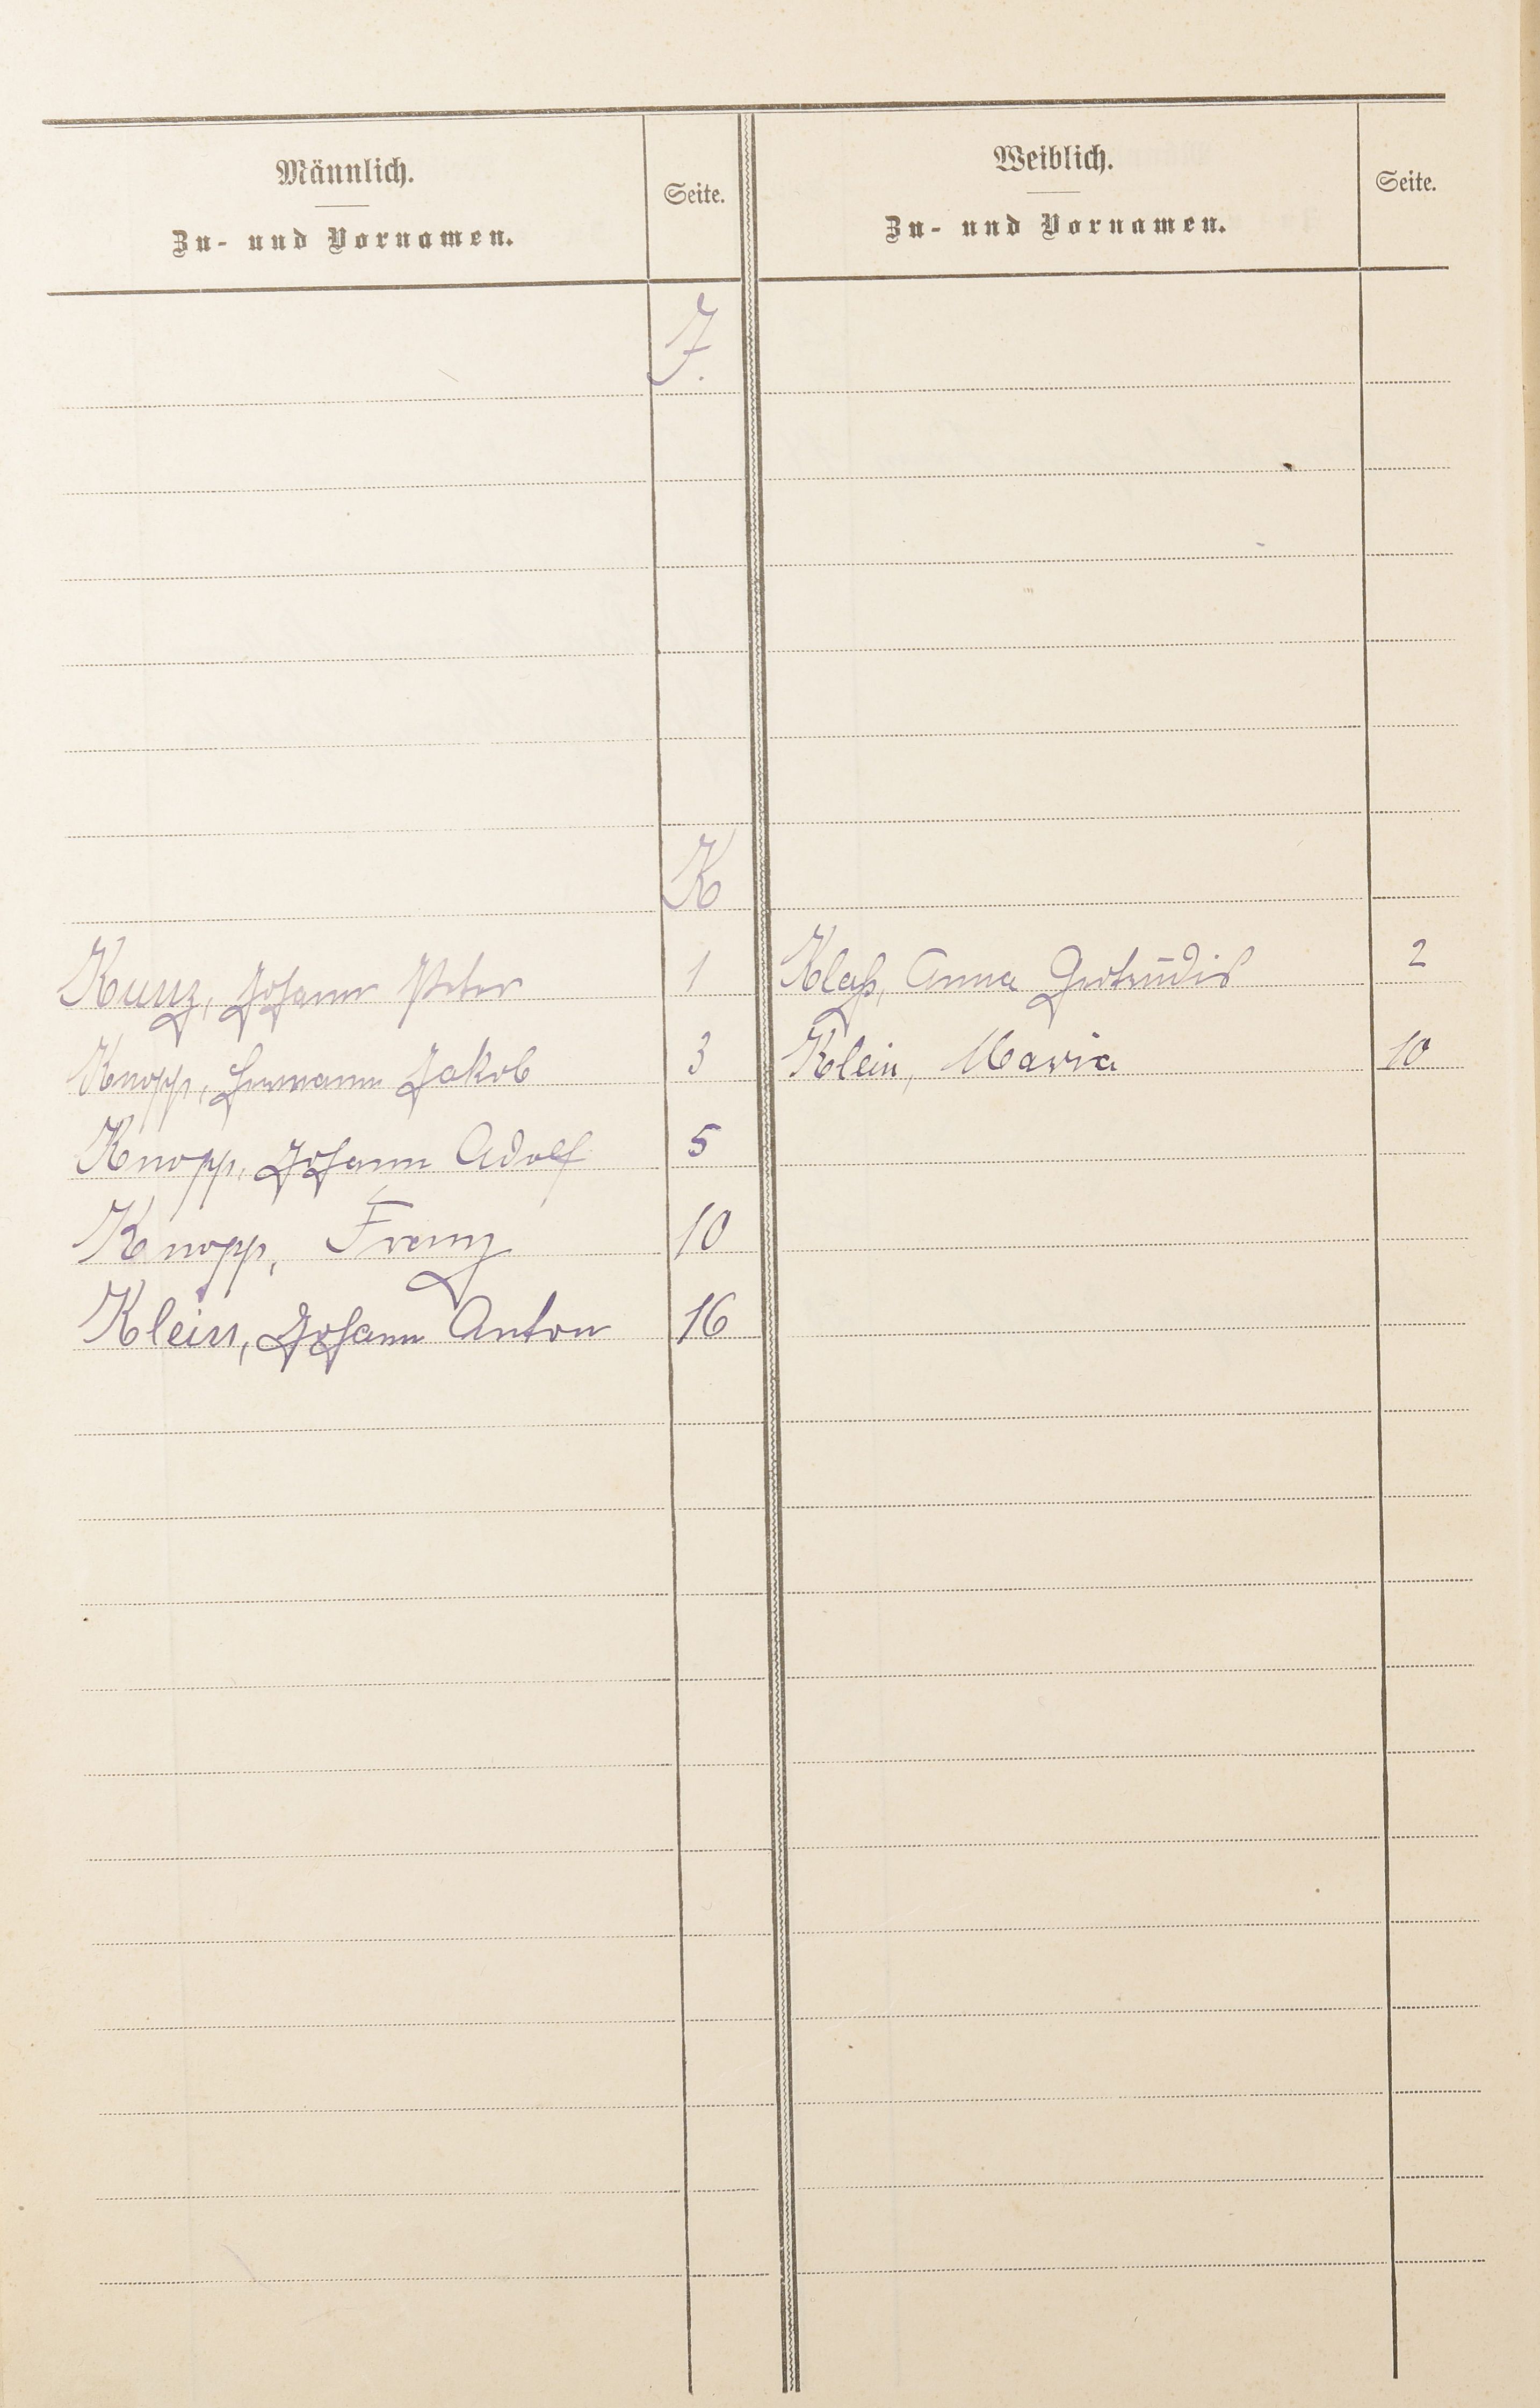 Männlich.
Zu- und Vornamen.
Seite.
Weiblich.
Zu- und Vornamen.
Seite.
J.
K
Kunz, Johann Peter 1 Klaß, Anna Gertrudis 2
Knopp, Hermann Jakob 3 Klein, Maria 10
Knopp, Johann Adolf 5
Knopp, Franz 10
Klein, Johann Anton 16